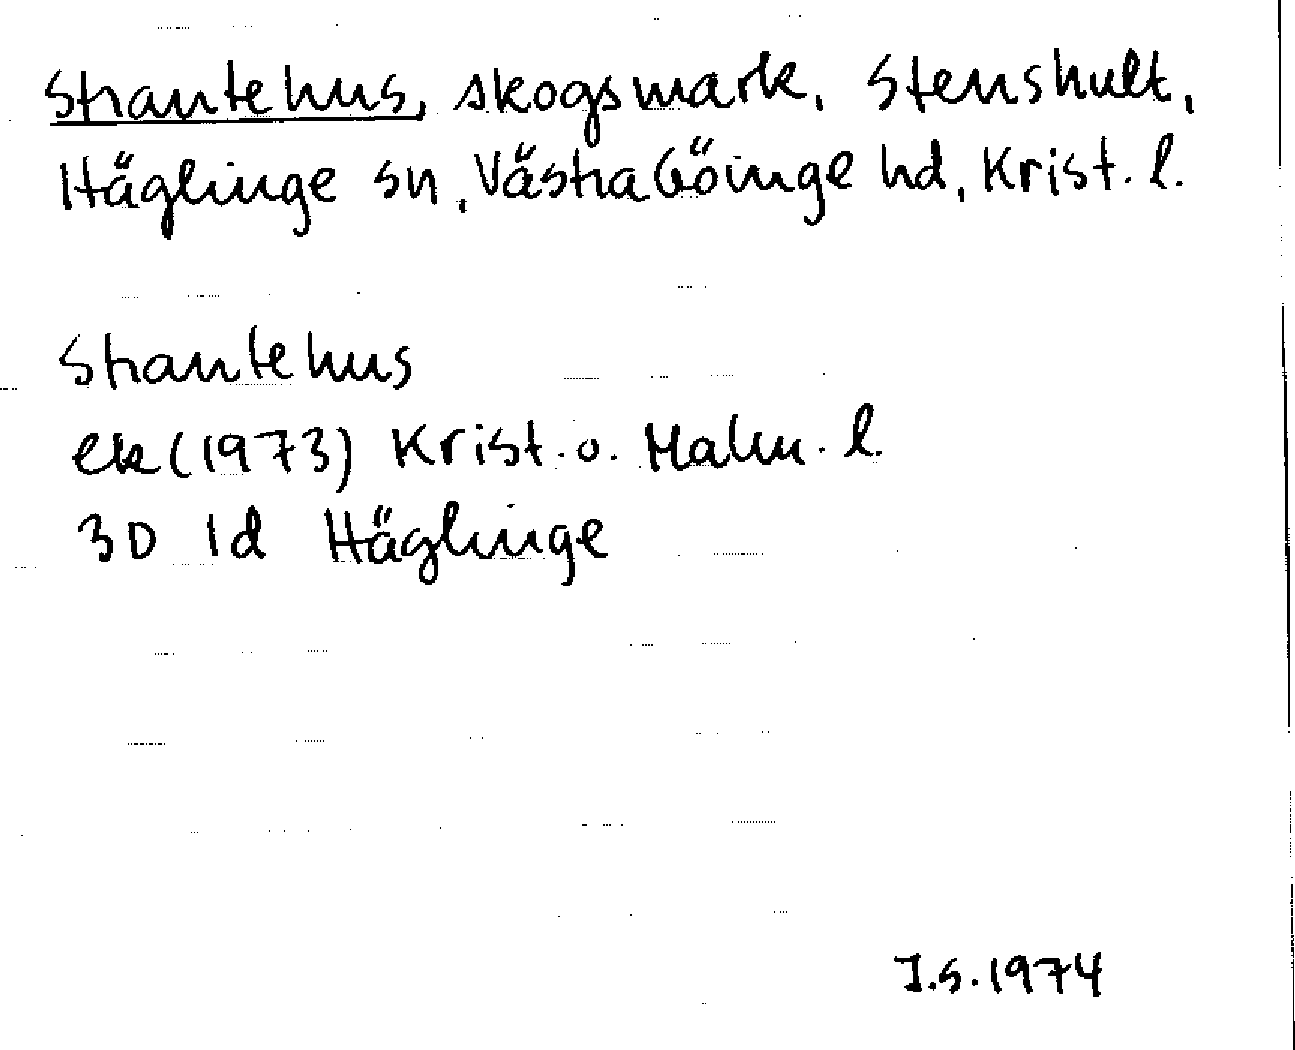 Strantehus, skogsmark, Stenshult,
Häglinge sn, Västra Göinge hd, Krist. l.
Strantehus
ek (1973) Krist. o. Malm. l.
3D 1d Häglinge
I.S. 1974